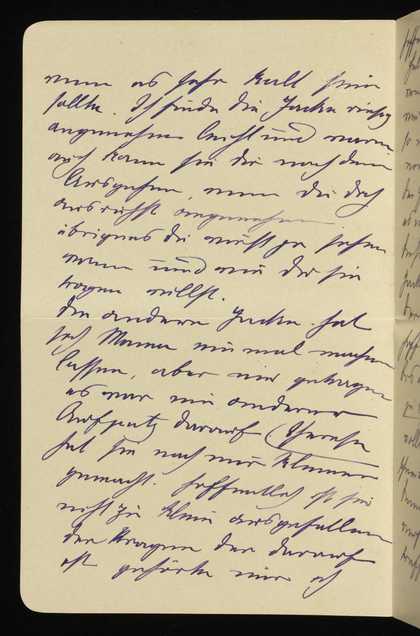 wenn es sehr kalt sein
sollte. Ich finde die Jacke riesig
angenehm leicht und warm
auch kann sie dir nach dem
Ausgehen, wenn du dich
ausruhst angenehm
übrigens du wirst ja sehen
wann und wie du sie
tragen willst.
Die andere Jacke hat
sich Mama einmal machen
lassen, aber nie getragen
es war ein anderer
Aufputz darauf (Therese
hat sie nach mir kleiner
gemacht. Hoffentlich ist sie
nicht zu klein ausgefallen
der Kragen der darauf
ist gehörte mir ich